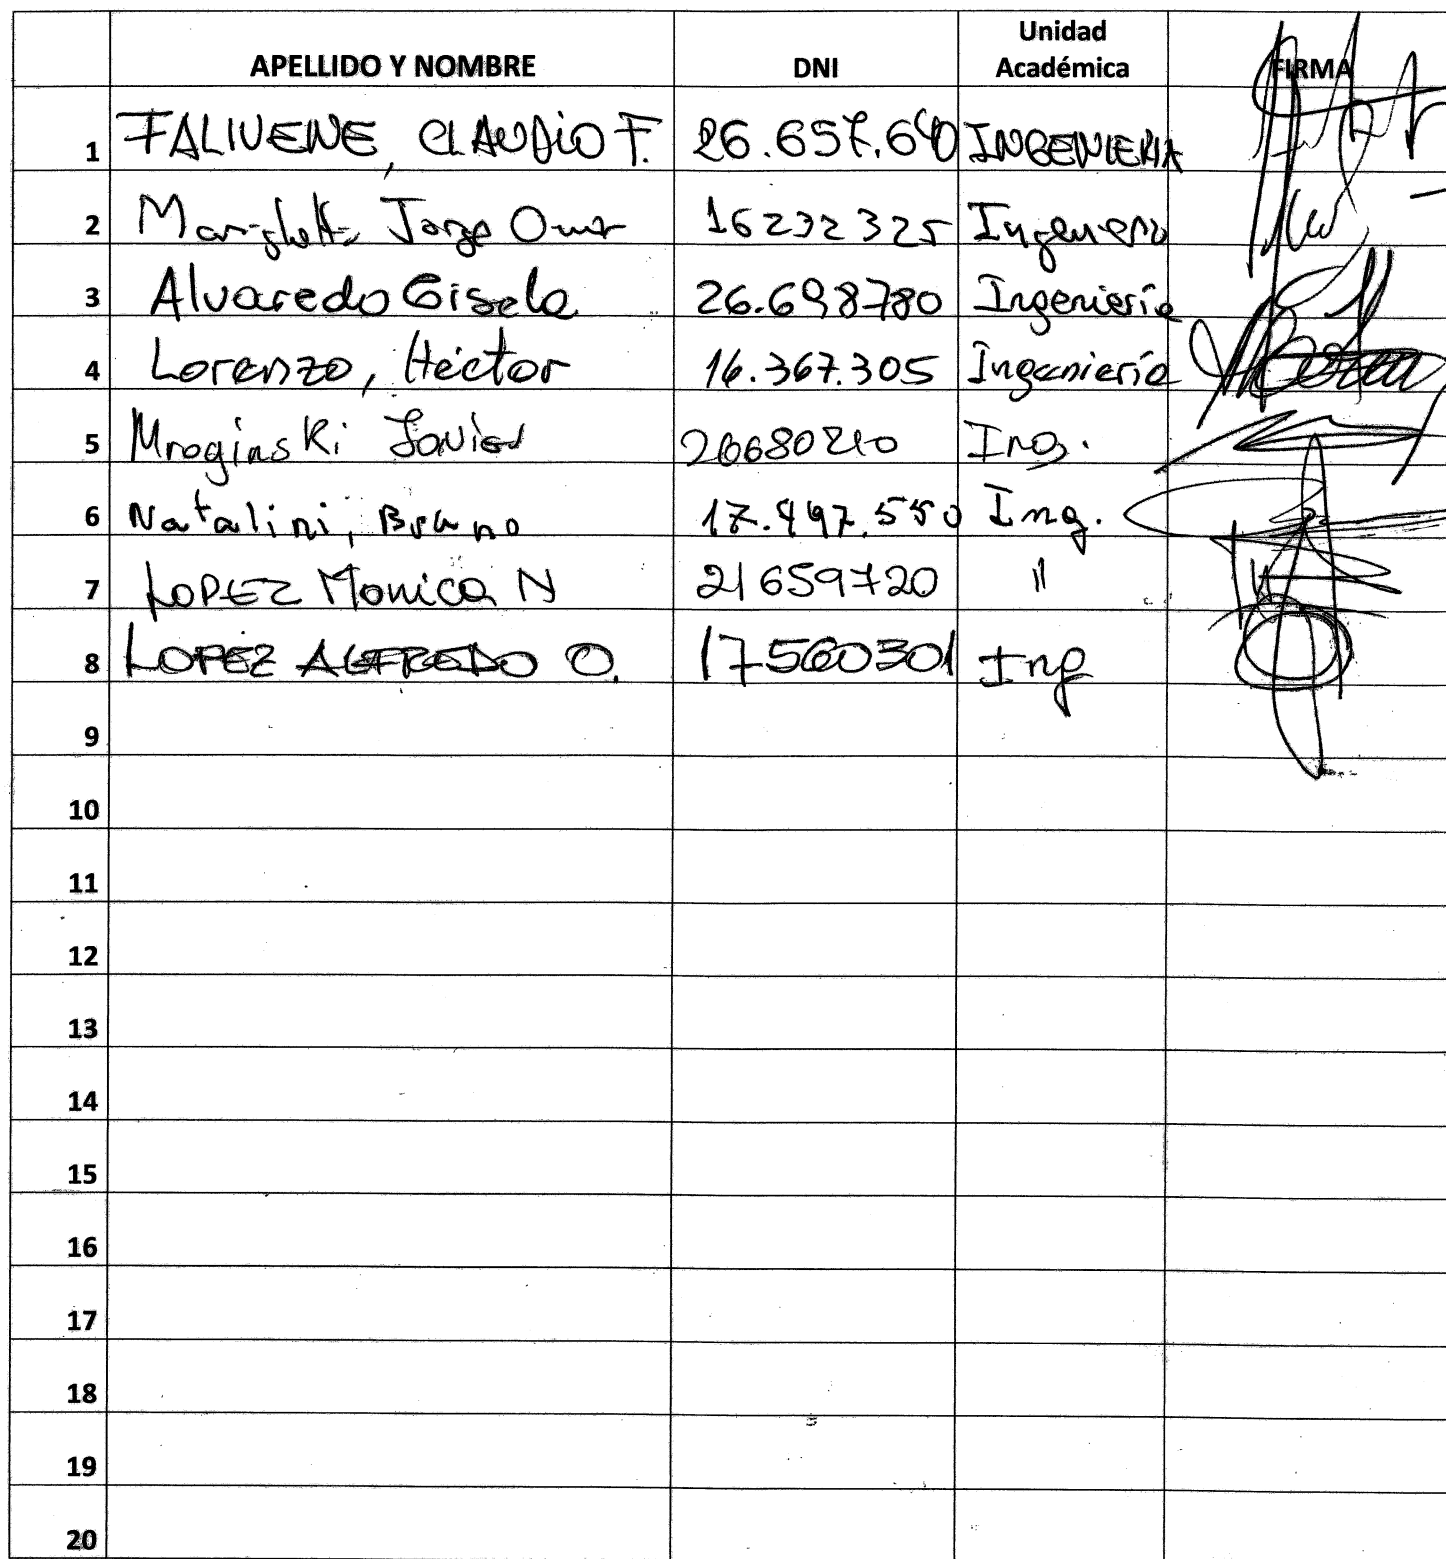 APELLIDO Y NOMBRE DNI Unidad Académica FIRMA
1 FALIVENE, CLAUDIO F. 26.657.640 INGENIERIA
2 Jorge Omar 16232325 Ingeniería
3 Alvaredo Gisela 26.698780 Ingeniería
4 Lorenzo, Héctor 16.367.305 Ingeniería
5 Mroginski Javier 26680210 Ing.
6 Natalini, Bruno 17.497.550 Ing.
7 LOPEZ Monica N 21659720 "
8 LOPEZ ALFREDO O. 17560301 Ing
9
10
11
12
13
14
15
16
17
18
19
20